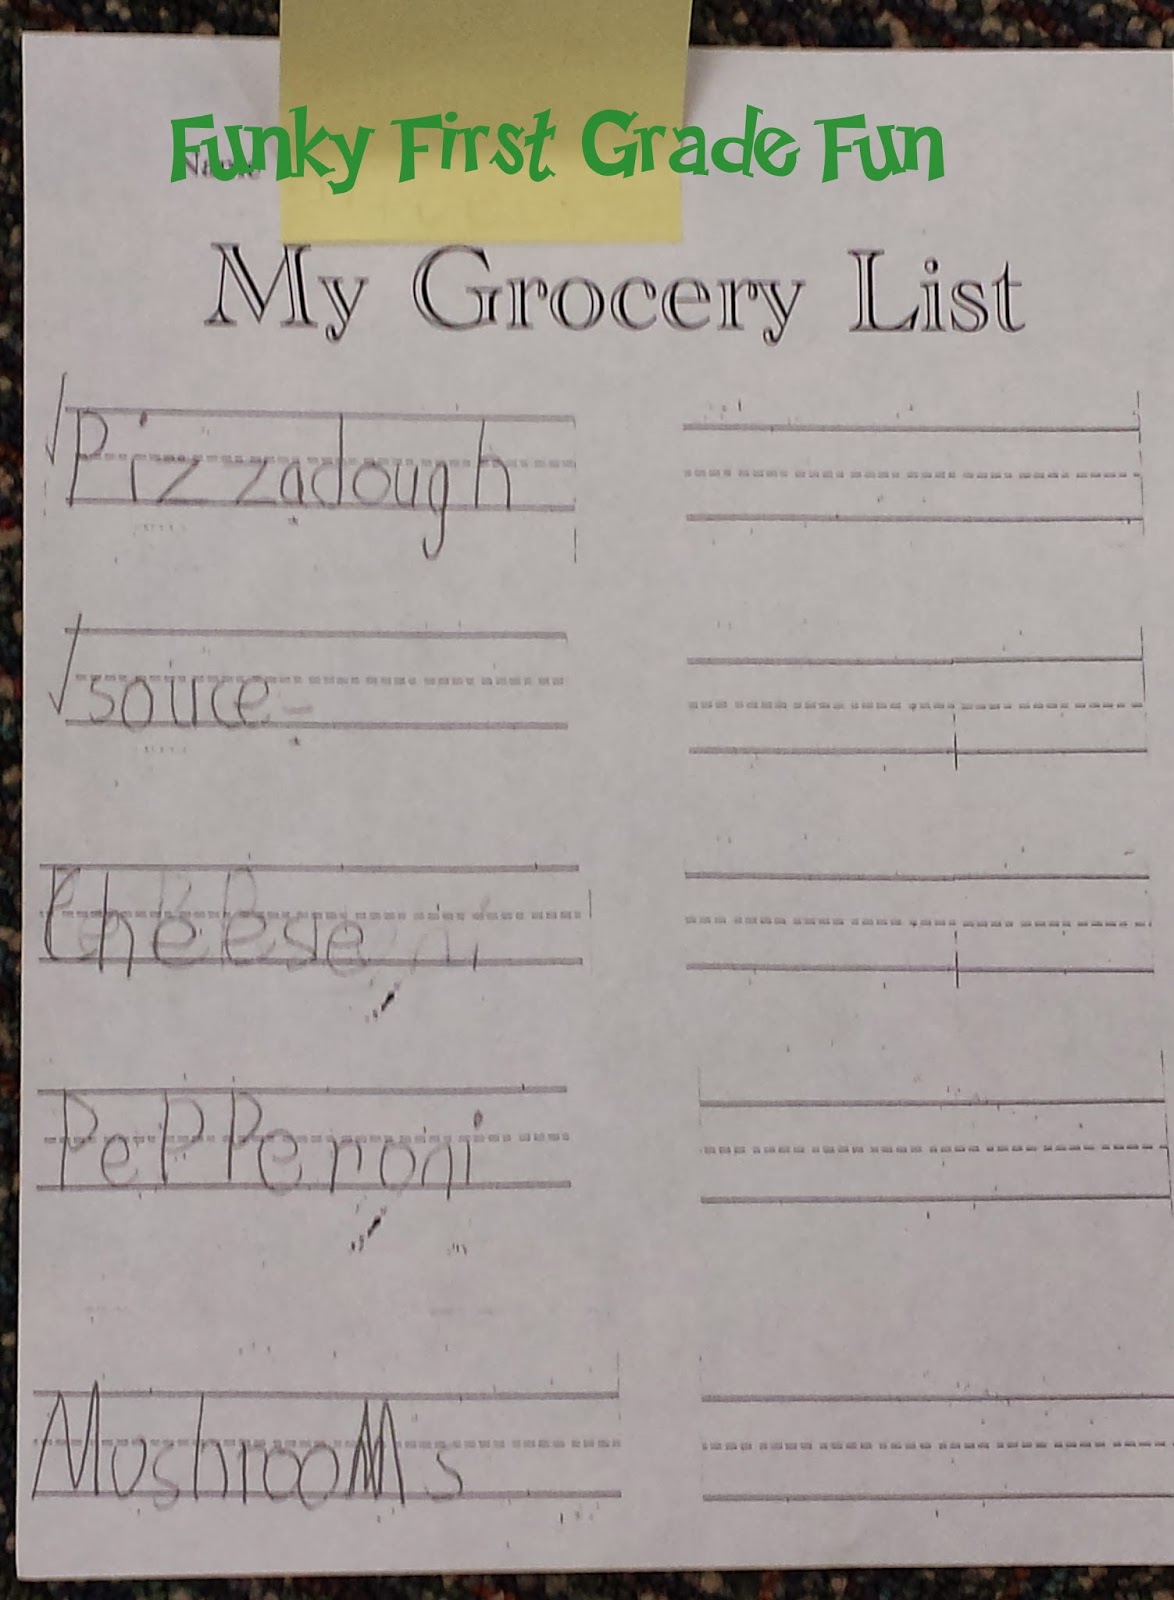 Funky First Grade Fun
Name
My Grocery List
√Pizzadough
√souce
Cheese
PePPeroni
MushrooMs